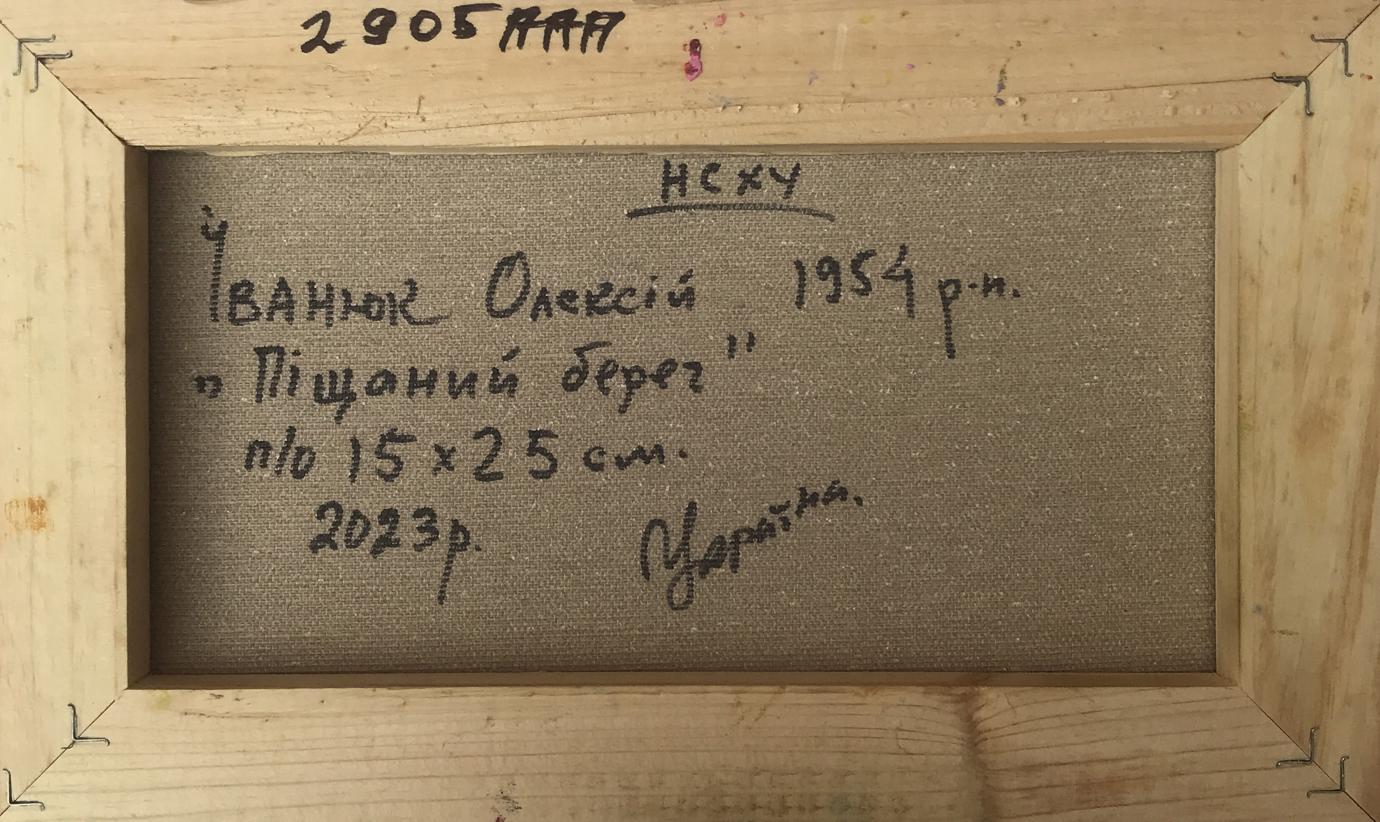 2905ААА
НСХУ
Іванюк Олексій 1954 р.н.
„Піщаний берег"
п/о 15х25 см.
2023р.
Україна.